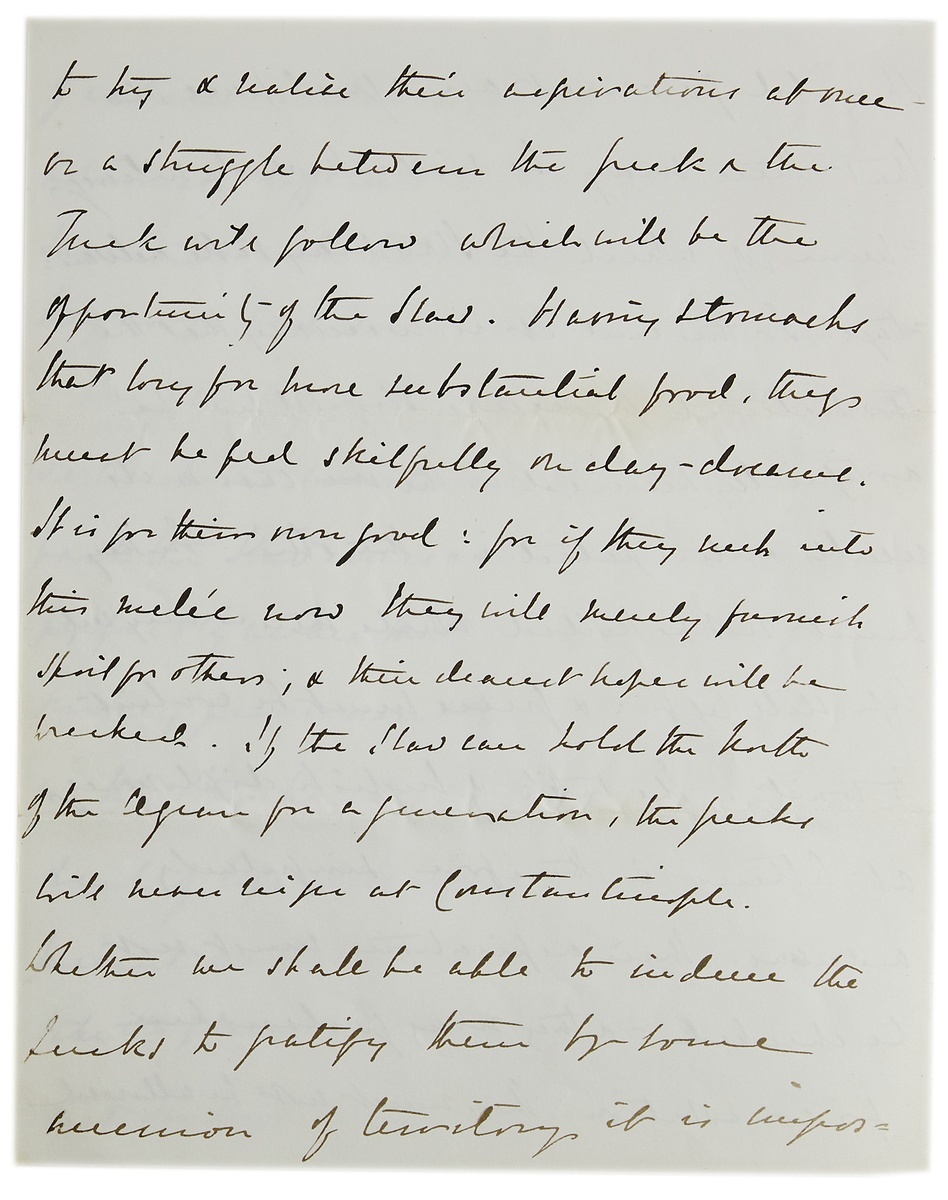 to try & realise their aspirations at once –
or a struggle between the Greek & the
Turk will follow which will be the
opportunity of the Slav. Having stomachs
that long for more substantial food, they
must be fed skilfully on day-dreams.
It is for their own good: for if they rush into
this melée now they will merely furnish
spoil for others; & their dearest hopes will be
wrecked. If the Slav can hold the North
of the Aegean for a generation, the Greeks
will never reign at Constantinople.
Whether we shall be able to induce the
Turks to gratify them by some
accession of territory it is impos=